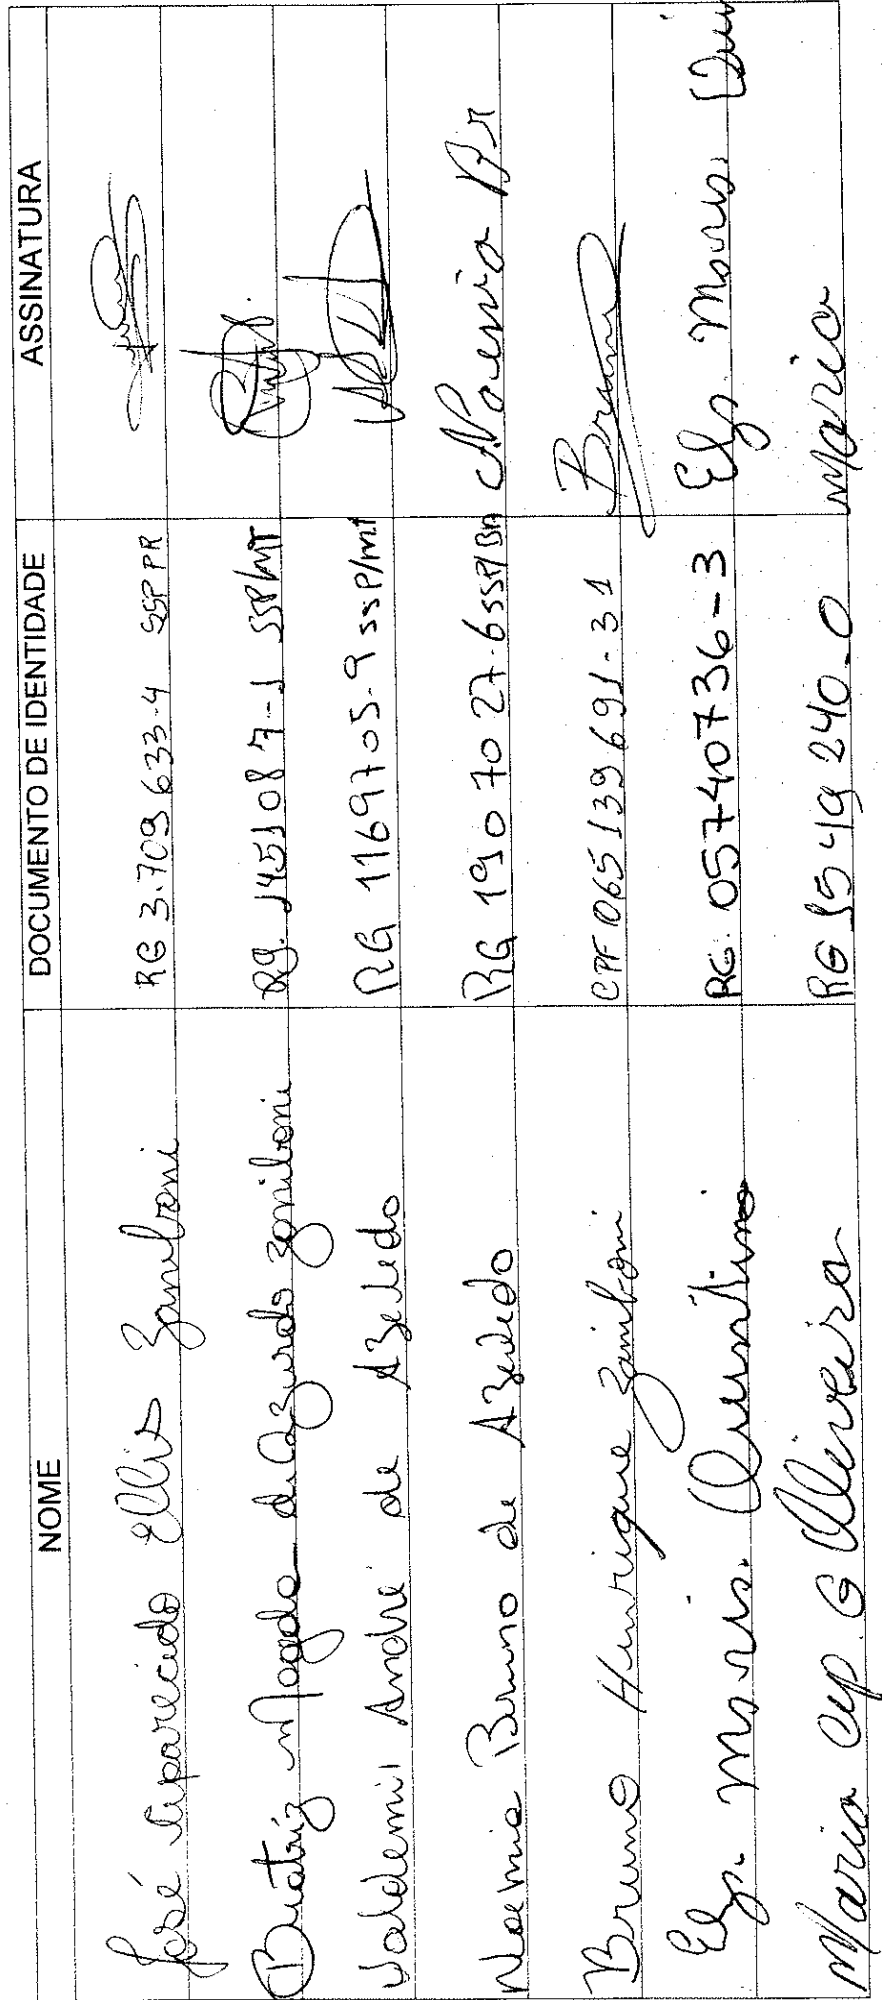 NOME DOCUMENTO DE IDENTIDADE ASSINATURA
José Aparecido Ellis Zamboni RG 3.709 633-4 SSP PR
Beatriz Magda de Azevedo Zamboni Rg. 1451087-1 SSP/MT
Valdemir André de Azevedo RG 1169705-9 SSP/MT
Noemia Bruno de Azevedo RG 190 70 27-6 SSP/BA Noemia Br
Bruno Henrique Zamboni CPF 065 139 691-31 Bruno
Elza Maria Quintino RG. 05740736-3 Elza Maria Qui
Maria Ap. G Oliveira RG 1549 240-0 Maria